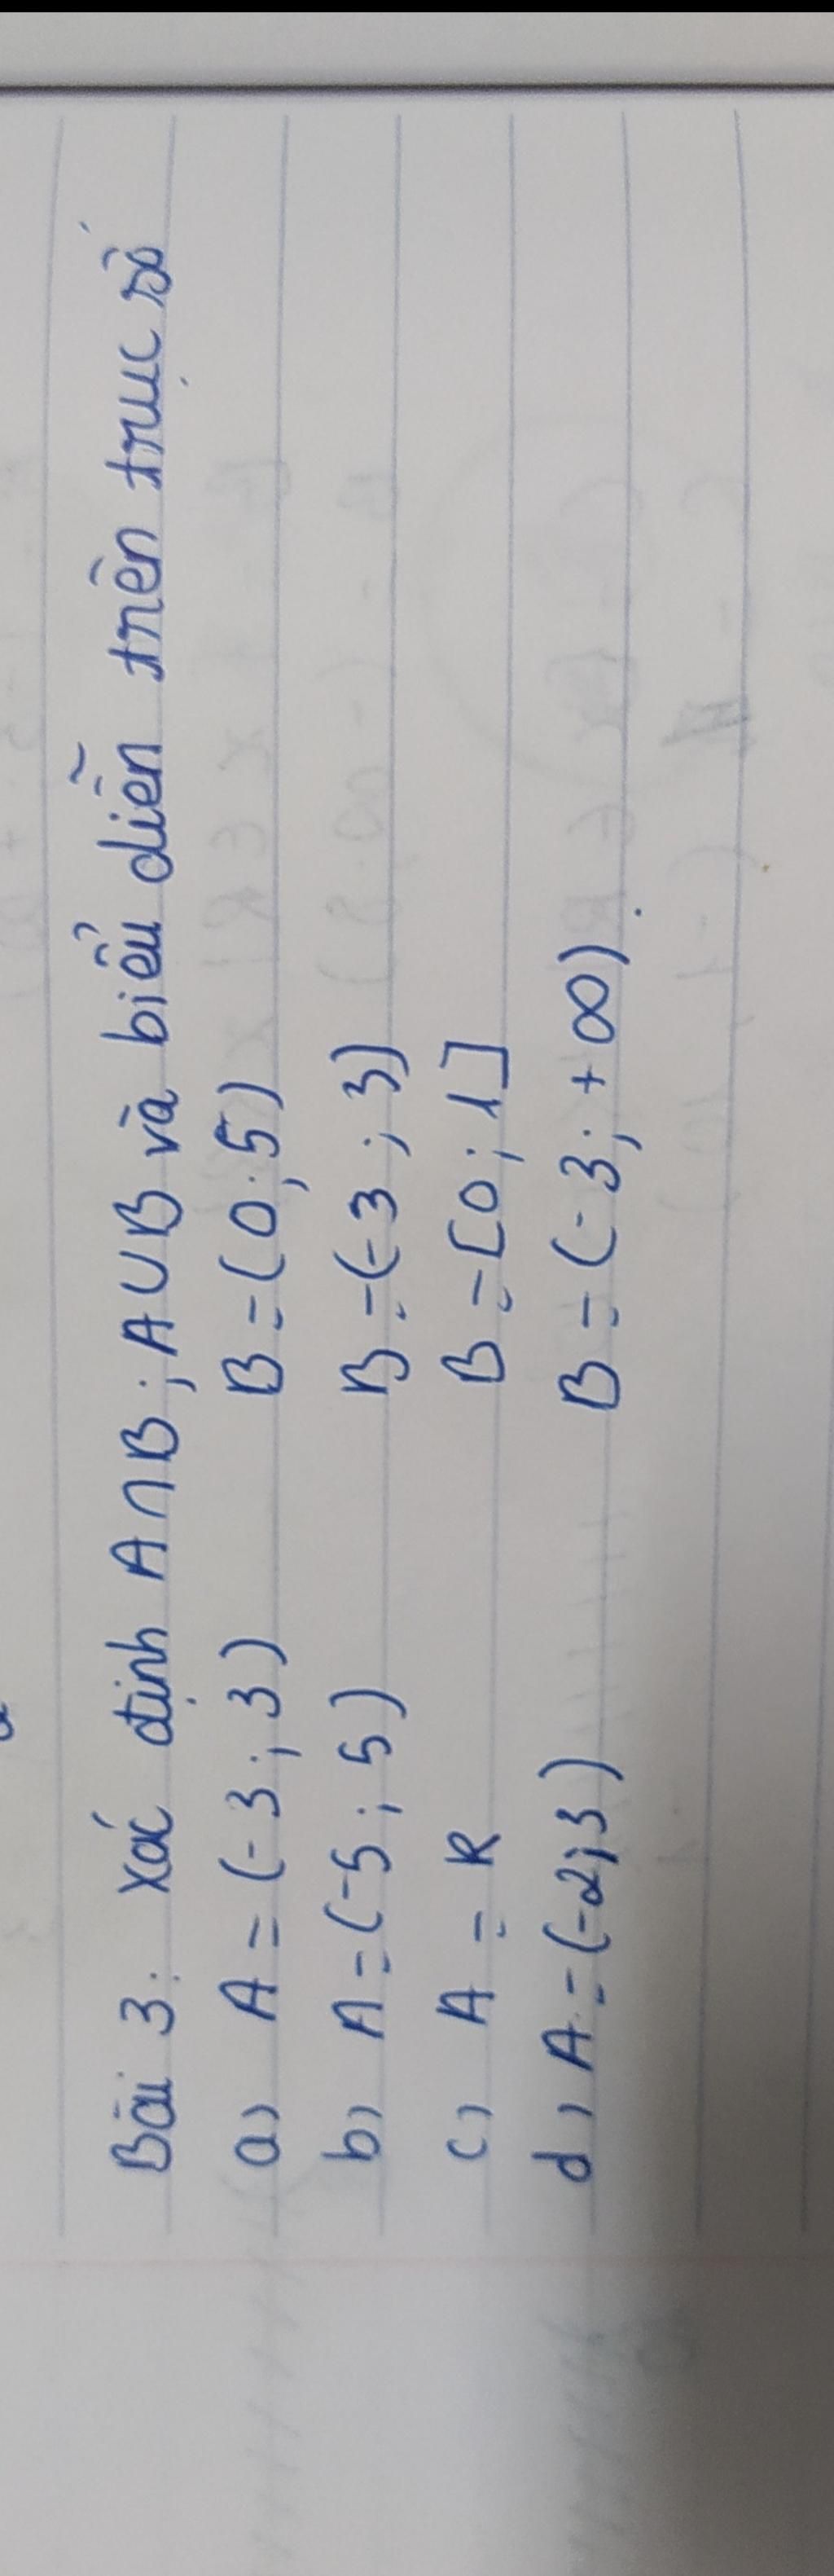 Bài 3: Xác định A∩B; A∪B và biểu diễn trên trục số
a) A = (-3; 3) B = (0; 5)
b) A = (-5; 5) B = (-3; 3)
c) A = R B = [0; 1]
d) A = (-2; 3) B = (-3; +∞).